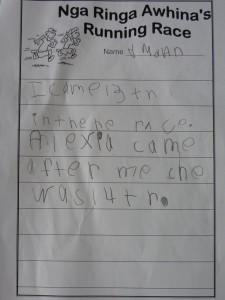 Nga Ringa Awhina's
Running Race
Name
I came 13 tn
in the race.
Allexia came
after me che
was 14 tn.